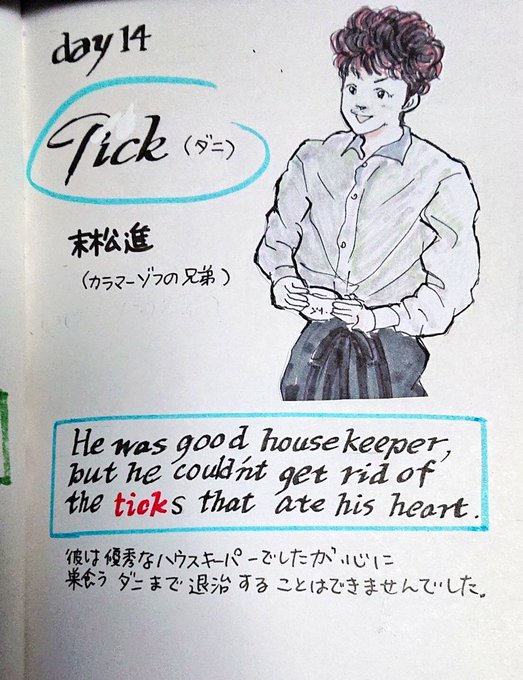 day 14
Tick (ダニ)
末松進
(カラマーゾフの兄弟)
He was good housekeeper,
but he couldn't get rid of
the ticks that ate his heart.
彼は優秀なハウスキーパーでしたが心に
巣食うダニまで退治することはできませんでした。